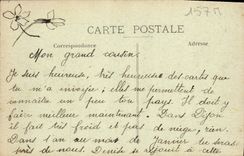 1574
CARTE POSTALE
Correspondance Adresse
Mon grand cousin
Je suis heureuse, très heureuse des cartes que
tu m'a envoyée ; elles me permettent de
connaitre un peu ton pays. Il doit y
faire meilleur maintenant. Dans Dijon
il fait très froid et pas de neige, rien.
Dans l'an au mois de janvier tu seras
près de nous. Denise se réjouit à cette